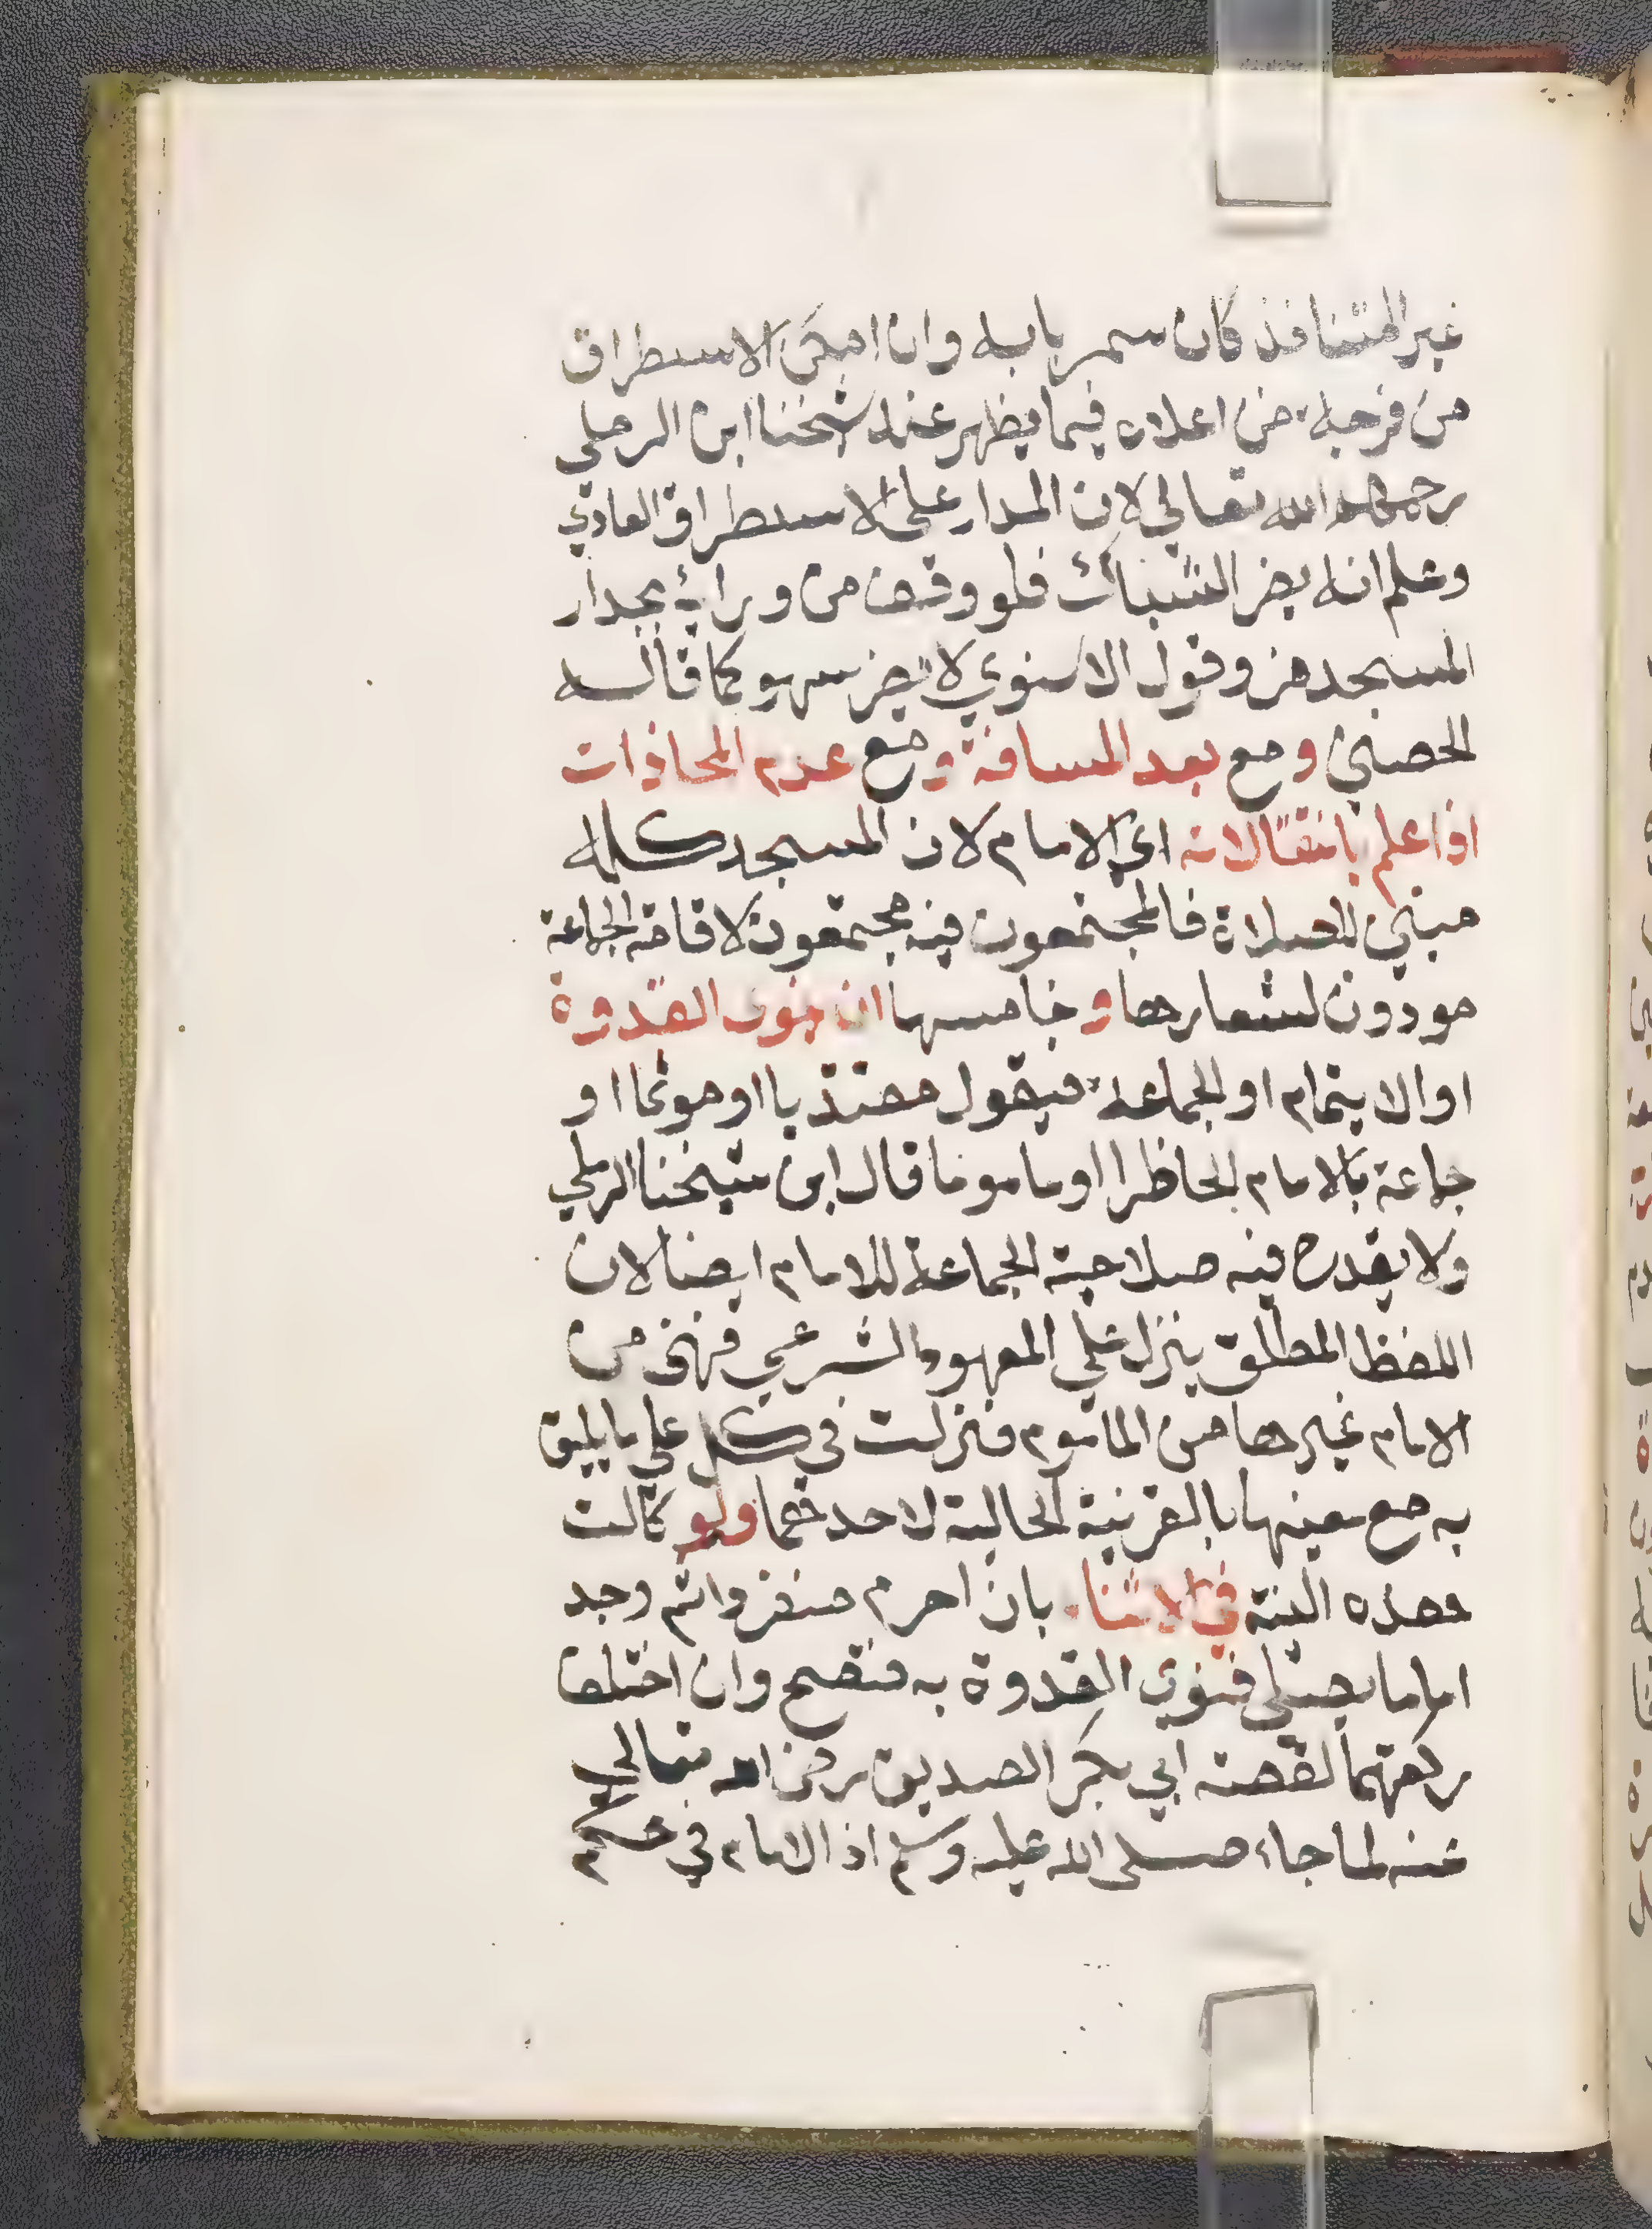 غير المتنافذ كان سمر بابه وان امكن الاستطراق
من فرجة من اعلاه فيما يظهر عند شيخنا ابن الرملي
رحمه الله تعالي لان المدار علي الاستطراق العادي
وعلم انه يضر الشباك فلو وقف من ورائه بجدار
المسجد ضر وقول الاسنوي لا يضر سهو كما قاله
الحصني ومع بعد المسافة ومع عدم المحاذات
اذا علم بانتقالاته اي الامام لان المسجد كله
مبني للصلاة فالمجتمعون فيه مجتمعون لاقامة الجماعة
مودون لشعارها وخامسها ان ينوي القدوة
او الايتمام او الجماعة فيقول مقتديا او موتما او
جماعة بالامام الحاظر او ماموما قال ابن شيخنا الرملي
ولا يقدح فيه صلاحية الجماعة للامام ايضا لان
اللفظ المطلق ينزل علي المعهود الشرعي فهي من
الامام غيرها من الماموم فنزلت في كل علي ما يليق
به مع تعينها بالقرينة الحالية لاحدهما ولو كانت
هذه النية في الاثناء بان احرم منفردا ثم وجد
اماما يصلي فنوي القدوة به فتصح وان اختلفا
ركعتهما لقصة ابي بكر الصديق رضي الله تعالي
عنه لما جاء صلى الله عليه وسلم اذ الامام في حكم